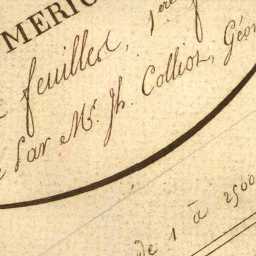 MERIC
feuilles, 1ere
Par Mr. Jh. Colliot, Géo
de 1 à 2500